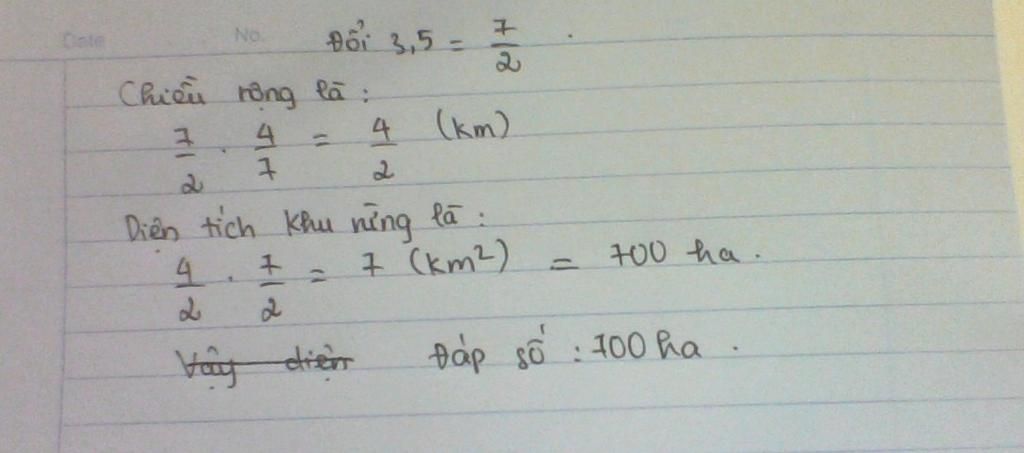 Date No. Đổi 3,5 = 7/2 .
Chiều rộng là :
7/2 . 4/7 = 4/2 (km)
Diện tích khu rừng là :
4/2 . 7/2 = 7 (km²) = 700 ha .
Vậy diện Đáp số : 700 ha .